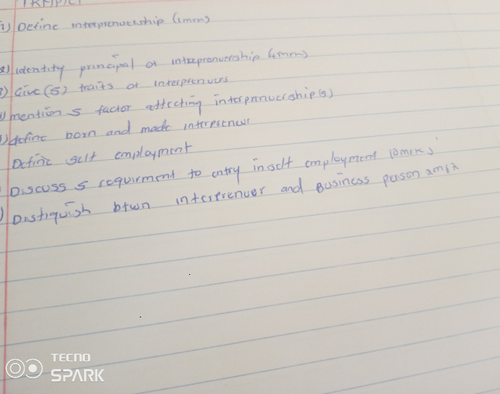 1) Define interprenuership (1mm)
2) identity principal of interprenuership (5mm)
3) Give (5) traits of interprenues
mention 5 factor affecting interprenuership(s)
) define born and made interprenuer
Define self employment
Discuss 5 requirment to entry in self employment 10mks
) Distiquish btwn interprenuer and Business person 2mks
TECNO
SPARK